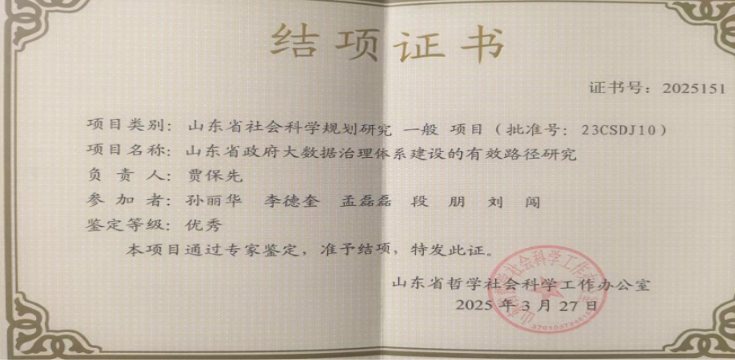 结项证书
证书号：2025151
项目类别：山东省社会科学规划研究 一般 项目（批准号：23CSDJ10）
项目名称：山东省政府大数据治理体系建设的有效路径研究
负责人：贾保先
参加者：孙丽华 李德奎 孟磊磊 段朋 刘闯
鉴定等级：优秀
本项目通过专家鉴定，准予结项，特发此证。
山东省哲学社会科学工作办公室
2025年3月27日